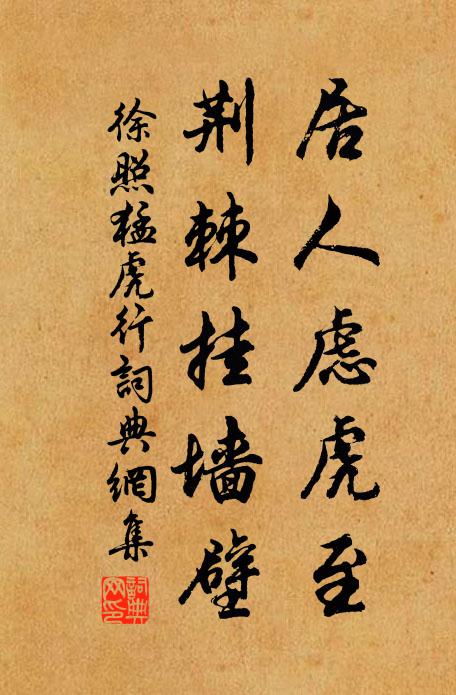 居人慮虎至
荆棘挂墙壁
徐照猛虎行詞典網集
詞典网印